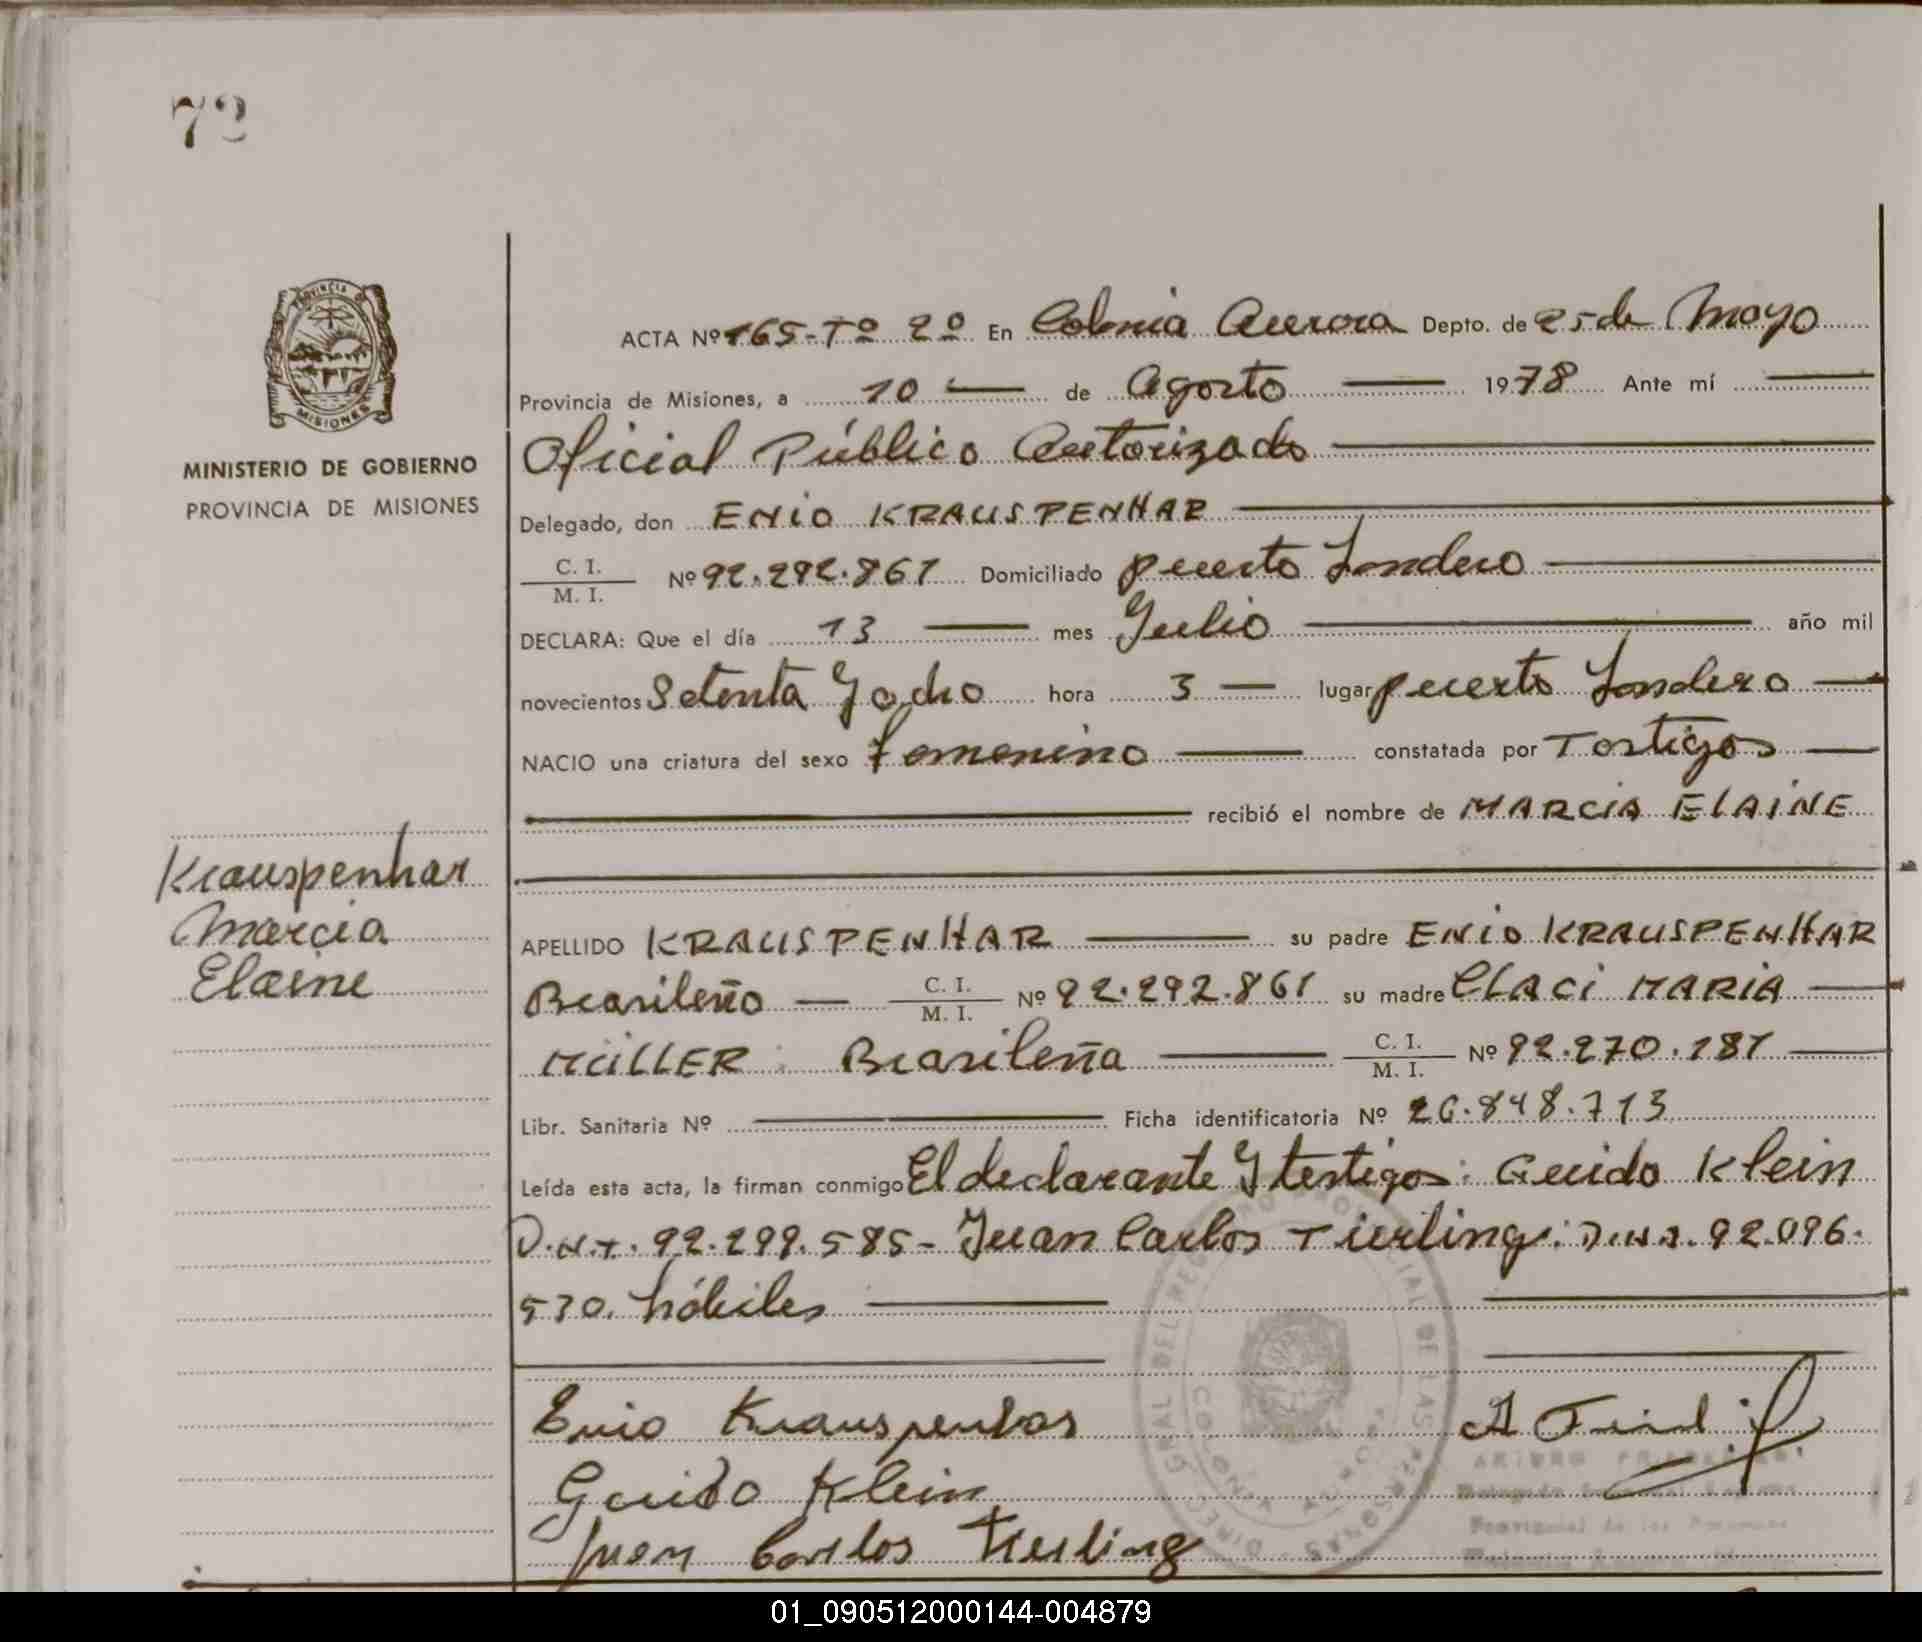 72
PROVINCIA DE
MISIONES
MINISTERIO DE GOBIERNO
PROVINCIA DE MISIONES
Krauspenhar
Marcia
Elaine
ACTA Nº 165-Tº 2º En Colonia Aurora Depto. de 25 de Mayo
Provincia de Misiones, a 10 de Agosto 1978 Ante mí
Oficial Público Autorizado
Delegado, don ENIO KRAUSPENHAR
C. I.
M. I. Nº 92.292.861 Domiciliado puerto Londero
DECLARA: Que el día 13 mes Julio año mil
novecientos Setenta Y ocho hora 3 lugar puerto Londero
NACIO una criatura del sexo femenino constatada por Testigos
recibió el nombre de MARCIA ELAINE
APELLIDO KRAUSPENHAR su padre ENIO KRAUSPENHAR
Brasileño C. I.
M. I. Nº 92.292.861 su madre CLACI MARIA
MÜLLER Brasileña C. I.
M. I. Nº 92.270.181
Libr. Sanitaria Nº Ficha identificatoria Nº 26.848.713
Leída esta acta, la firman conmigo El declarante Y testigos: Guido Klein
D.N.I. 92.299.585- Juan Carlos Tierling: D.N.I. 92.096.
530. hábiles
Enio Krauspenhar
Guido Klein
Juan Carlos Tierling
ARTURO
01_090512000144-004879